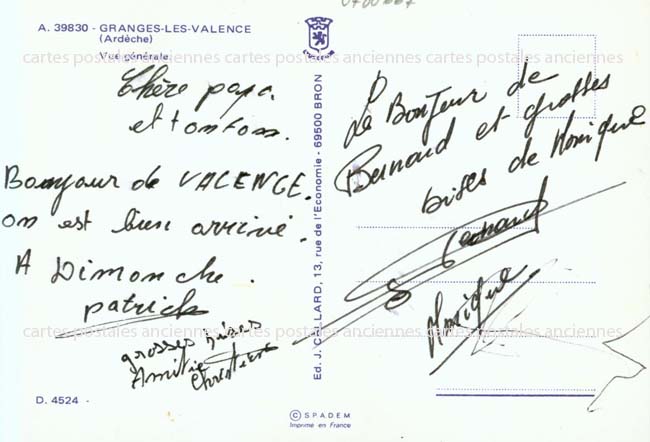 0700667
A. 39830 - GRANGES-LES-VALENCE
(Ardèche)
Vue générale
cartes postales anciennes cartes postales anciennes cartes postales anciennes
Chère papa.
et tonton.
Bonjour de VALENCE.
on est bien arrivé.
A Dimanche.
patrick
grosses bises
Amitié
Christian
cartes postales anciennes cartes postales anciennes cartes postales anciennes
D. 4524 -
Ed. J. CELLARD, 13, rue de l'Economie - 69500 BRON
Le Bonjour de
Bernard et grosses
bises de Monique
cartes postales anciennes cartes postales anciennes cartes postales anciennes
Bernard
Monique
© S.P.A.D.E.M
Imprimé en France